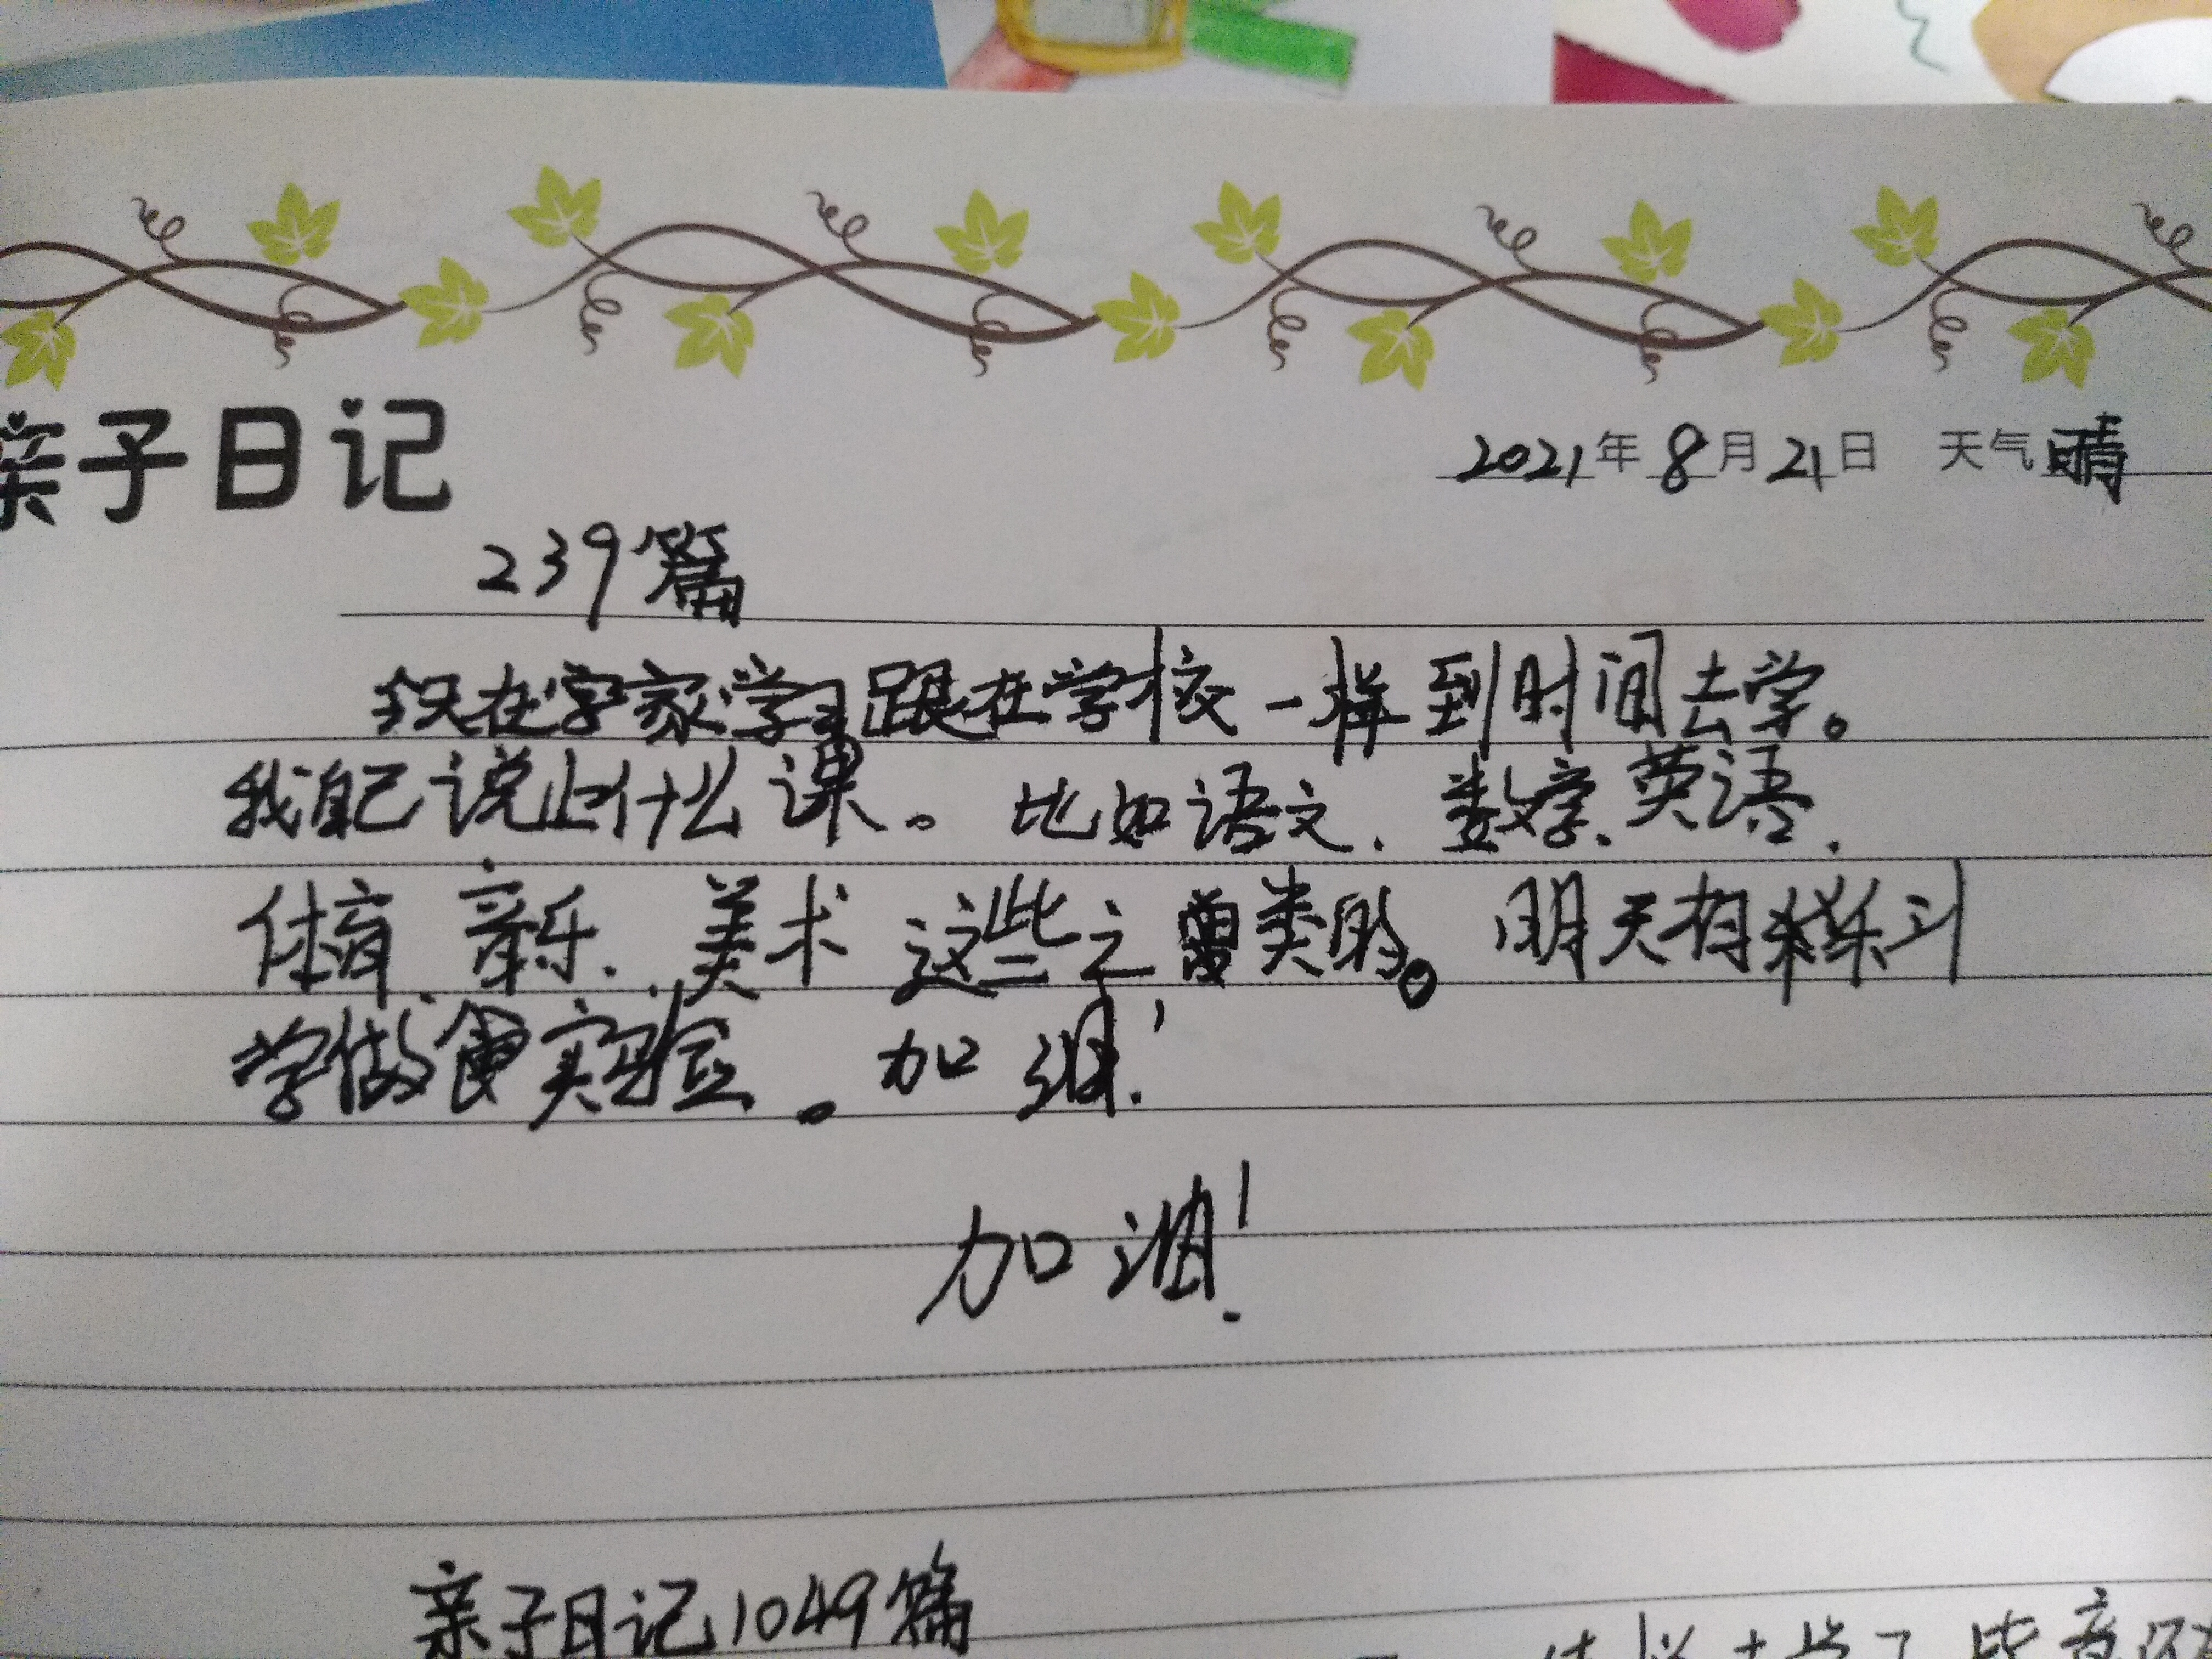 亲子日记
2021年8月21日 天气晴
239篇
今天在字家学习跟在学校一样到时间去学。
我自己说上什么课。比如语文、数学、英语、
体育、音乐、美术 这些之类的。明天有
学做实验。加油!
加油!
亲子日记1049篇